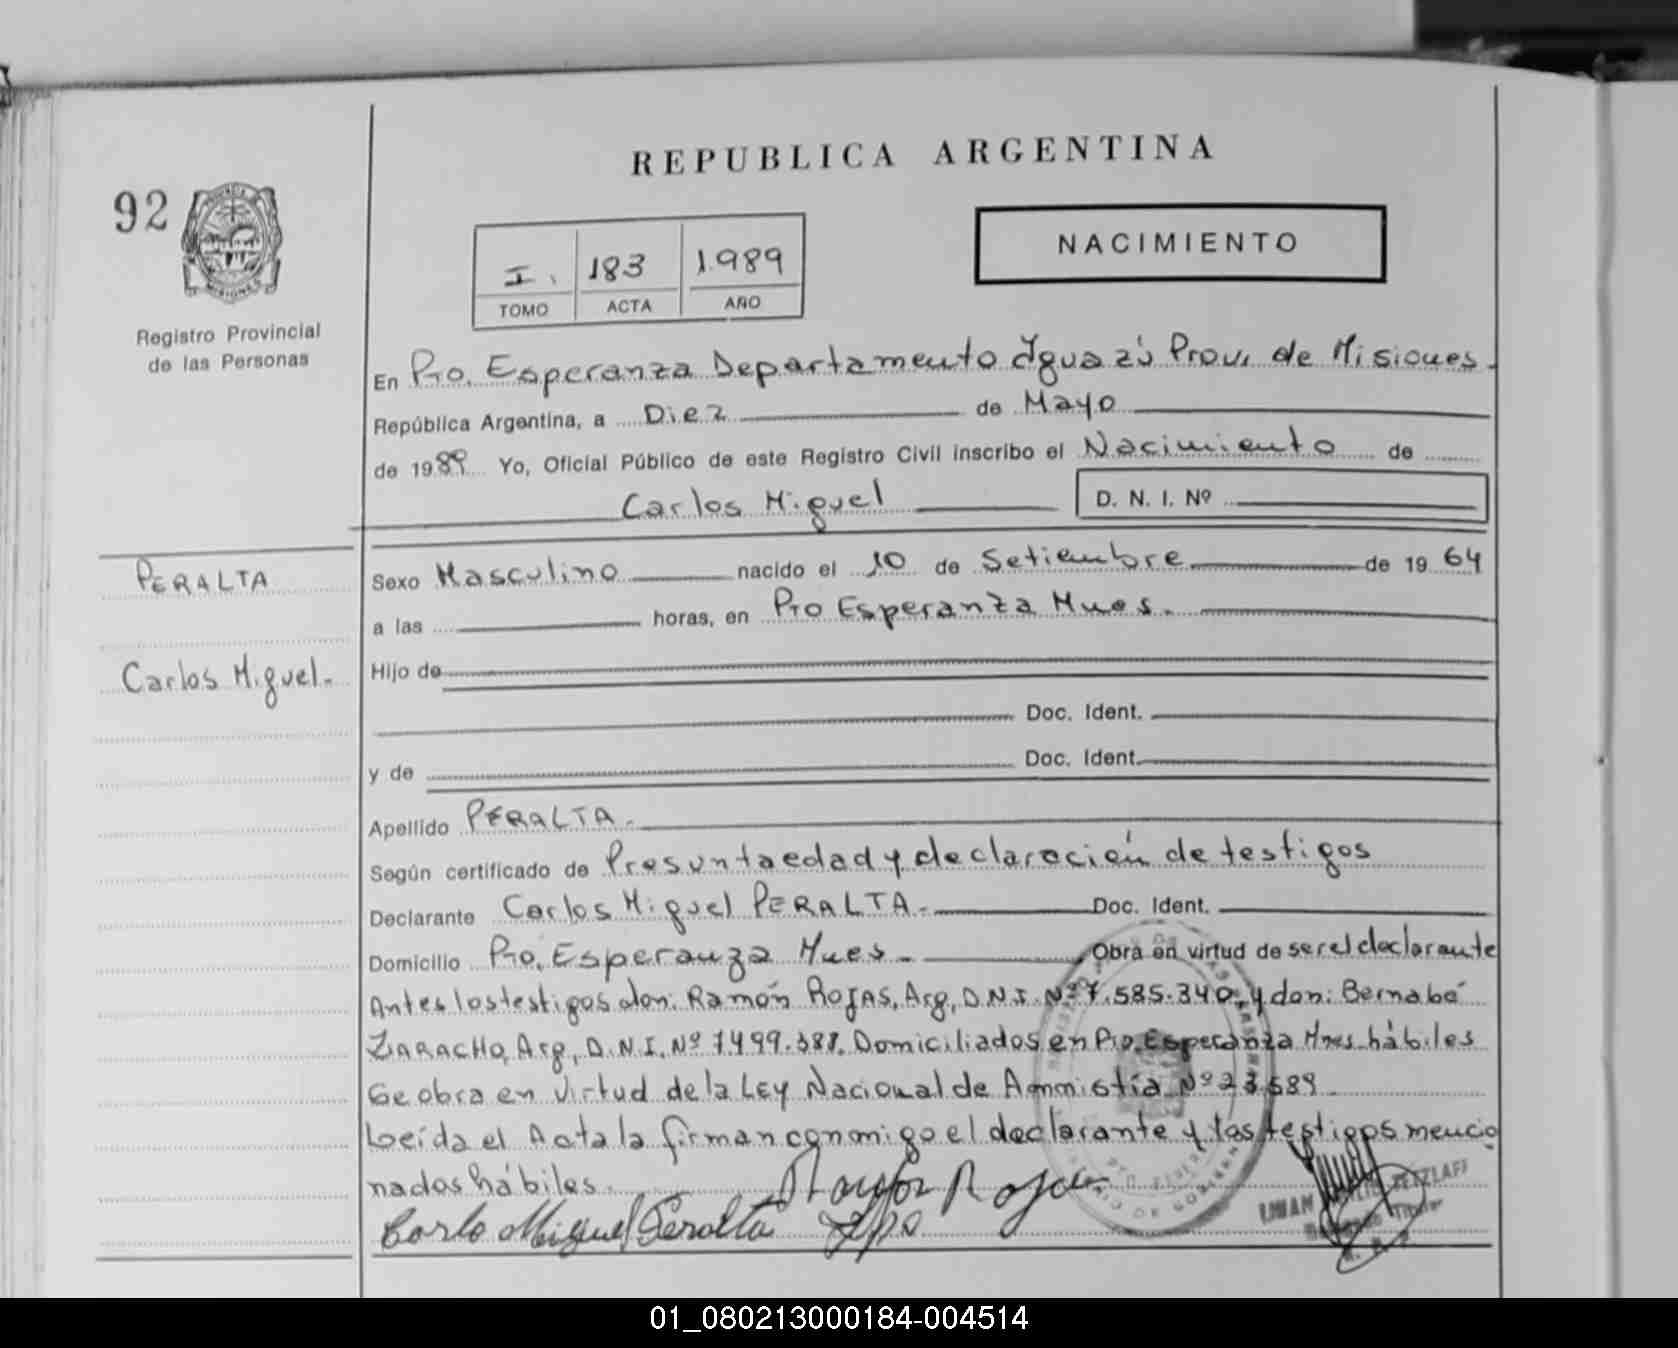 REPUBLICA ARGENTINA
92
PROVINCIA
MISIONES
Registro Provincial
de las Personas
I. 183 1.989
TOMO ACTA AÑO
NACIMIENTO
En Pto. Esperanza Departamento Yguazú Prov. de Misiones.
República Argentina, a Diez de Mayo
de 1989 Yo, Oficial Público de este Registro Civil inscribo el Nacimiento de
Carlos Miguel D. N. I. Nº
PERALTA
Carlos Miguel.
Sexo Masculino nacido el 10 de Setiembre de 1964
a las horas, en Pto Esperanza Mnes.
Hijo de
Doc. Ident.
y de Doc. Ident.
Apellido PERALTA.
Según certificado de Presunta edad y declaración de testigos
Declarante Carlos Miguel PERALTA. Doc. Ident.
Domicilio Pto. Esperanza Mnes. Obra en virtud de ser el declarante
Antes los testigos don: Ramón ROJAS, Arg, D.N.I. Nº 7.585.340, y don: Bernabé
ZARACHO, Arg, D.N.I. Nº Domiciliados en Pto. Esperanza Mnes. hábiles
Se obra en virtud de la Ley Nacional de Amnistía Nº 23.589.
Leída el Acta la firman conmigo el declarante y los testigos mencio
nados hábiles.
Carlo Miguel Peralta
01_080213000184-004514